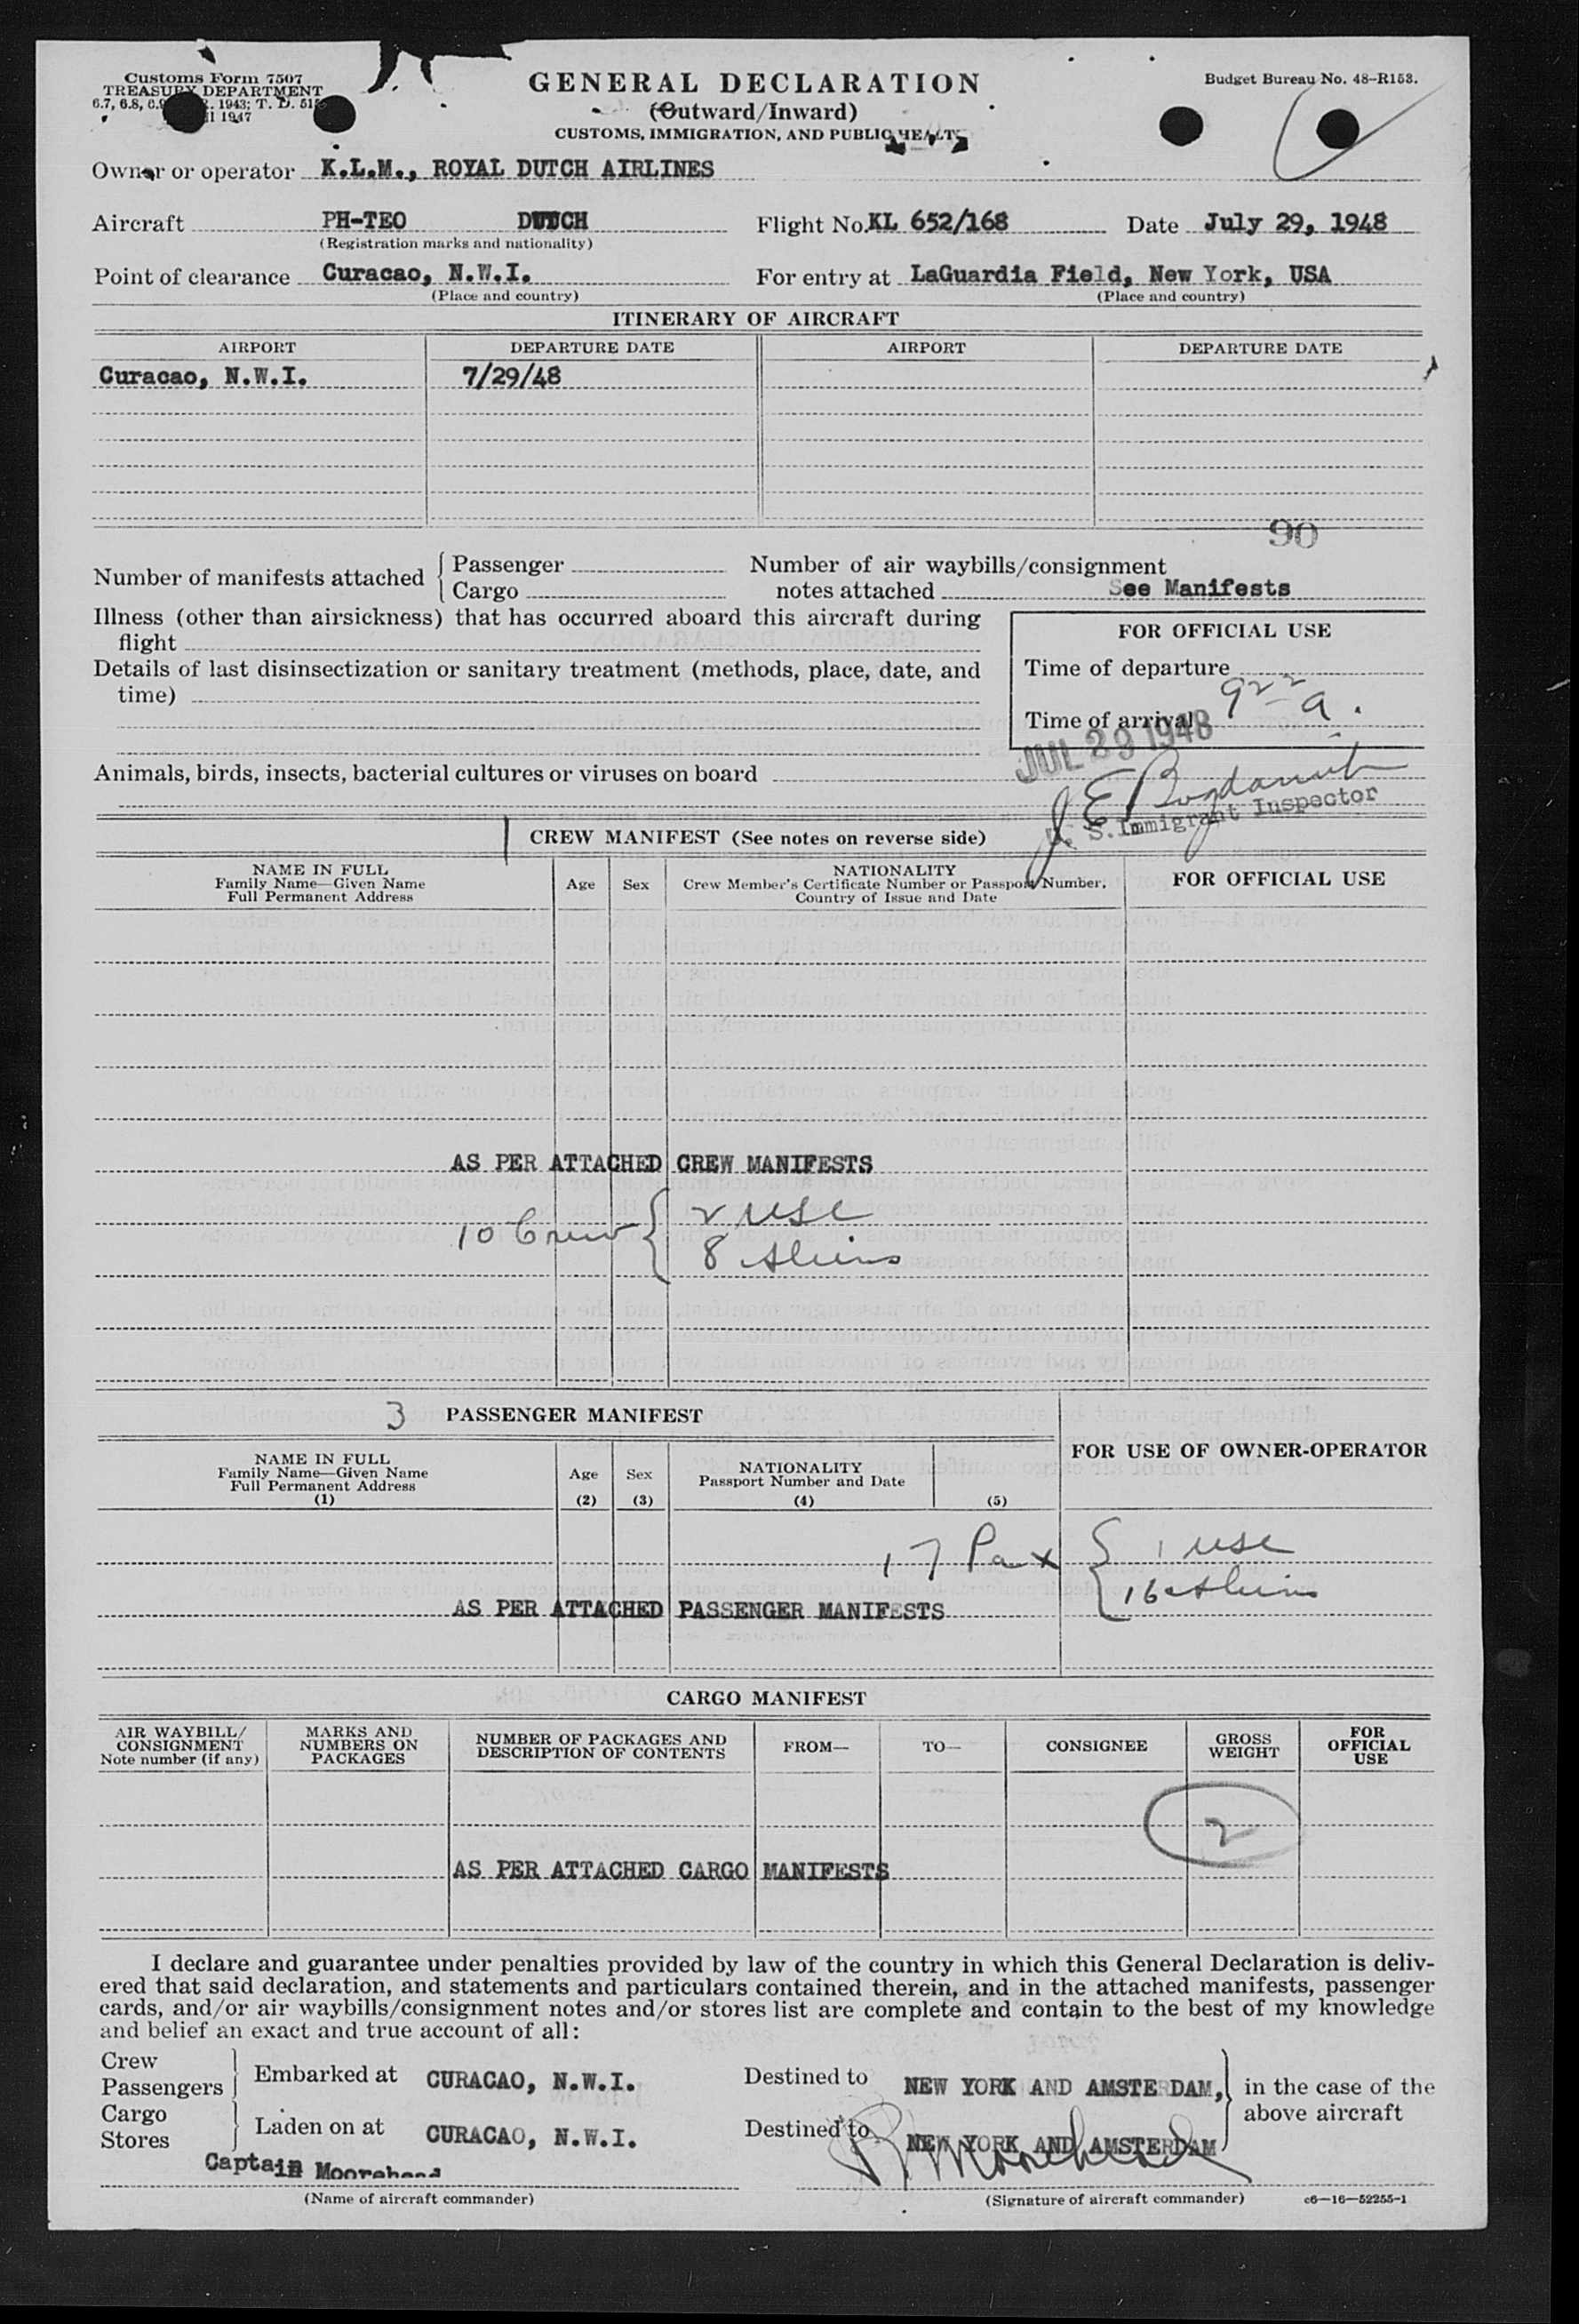 Customs Form 7507
TREASURY DEPARTMENT
GENERAL DECLARATION
Budget Bureau No. 48-R153.
(Outward/Inward)
CUSTOMS, IMMIGRATION, AND PUBLIC HEALTH
Owner or operator K.L.M., ROYAL DUTCH AIRLINES
Aircraft PH-TEO DUTCH Flight No. KL 652/168 Date July 29, 1948
(Registration marks and nationality)
Point of clearance Curacao, N.W.I. For entry at LaGuardia Field, New York, USA
(Place and country) (Place and country)
ITINERARY OF AIRCRAFT
AIRPORT DEPARTURE DATE AIRPORT DEPARTURE DATE
Curacao, N.W.I. 7/29/48
90
Number of manifests attached { Passenger
Cargo
Number of air waybills/consignment
notes attached See Manifests
Illness (other than airsickness) that has occurred aboard this aircraft during
flight
Details of last disinsectization or sanitary treatment (methods, place, date, and
time)
FOR OFFICIAL USE
Time of departure
Time of arrival 9 22 a.
JUL 29 1948
Animals, birds, insects, bacterial cultures or viruses on board
S. Immigrant Inspector
CREW MANIFEST (See notes on reverse side)
NAME IN FULL
Family Name—Given Name
Full Permanent Address
Age Sex
NATIONALITY
Crew Member's Certificate Number or Passport Number,
Country of Issue and Date
FOR OFFICIAL USE
AS PER ATTACHED CREW MANIFESTS
10 Crew { 2 USC
8 Aliens
3 PASSENGER MANIFEST
FOR USE OF OWNER-OPERATOR
NAME IN FULL
Family Name—Given Name
Full Permanent Address
(1)
Age
(2)
Sex
(3)
NATIONALITY
Passport Number and Date
(4) (5)
17 Pax { 1 USC
16 Aliens
AS PER ATTACHED PASSENGER MANIFESTS
CARGO MANIFEST
AIR WAYBILL/
CONSIGNMENT
Note number (if any)
MARKS AND
NUMBERS ON
PACKAGES
NUMBER OF PACKAGES AND
DESCRIPTION OF CONTENTS
FROM— TO— CONSIGNEE
GROSS
WEIGHT
FOR
OFFICIAL
USE
2
AS PER ATTACHED CARGO MANIFESTS
I declare and guarantee under penalties provided by law of the country in which this General Declaration is deliv-
ered that said declaration, and statements and particulars contained therein, and in the attached manifests, passenger
cards, and/or air waybills/consignment notes and/or stores list are complete and contain to the best of my knowledge
and belief an exact and true account of all:
Crew
Passengers } Embarked at CURACAO, N.W.I. Destined to NEW YORK AND AMSTERDAM,
Cargo
Stores } Laden on at CURACAO, N.W.I. Destined to NEW YORK AND AMSTERDAM
in the case of the
above aircraft
Captain Moorehead
(Name of aircraft commander) (Signature of aircraft commander) c6—16—52255-1